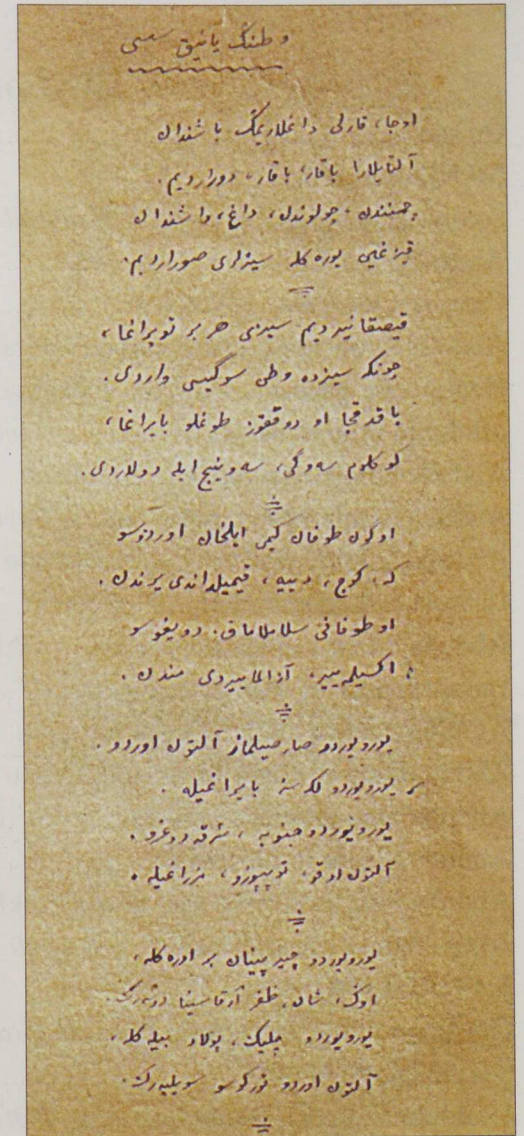 وطنڭ یانیق سسی
اوجا، قارلی داغلاریمڭ باشندان
آلتایلارا باقار، باقار، دوراردیم.
چمنندن، چولوندن، داغ، داشندان
قیزغین یوره‌كله سیزلری صوراردیم.
قیصقانیردیم سیزی هر بر توپراغا،
چونكه سیزده وطن سوگیسی واردی.
باقدقجا او دوققوز طوغلو بایراغا،
كوكلوم سه‌وگی، سه‌وینج ایله دولاردی.
اوگون طوفان كیمی ایلخان اوردوسو
كه، كوچ، دییه، قیمیلداندی یرندن.
او طوفانی سلاملاماق، دویغوسو
اكسیلمه‌ییر، آزالماییردی مندن.
یورویوردو صارصیلماز آلتون اوردو.
یورویوردو لكه‌سز بایراغیله.
یورویوردو جنوبه، شرقه دوغرو.
آلتون اوقو، توپپوزو، مزراغیله.
یورویوردو چیرپینان بر اوره‌كله،
اوڭ، شان، ظفر آرقاسینا
یورویوردو چلیك، پولاد بیله‌كله،
آلتون اوردو توركوسو سویلیه‌رك.